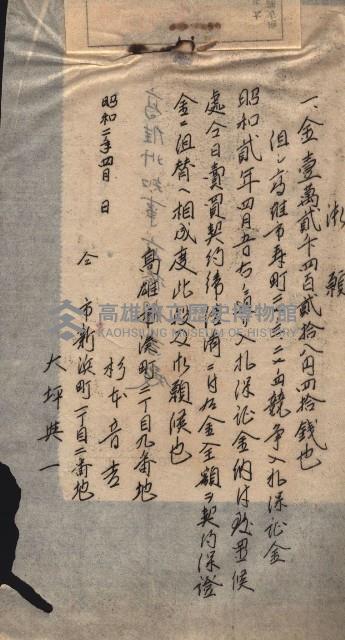 御願
一、金壹萬貳千四百貳拾八円四拾錢也
但シ高雄市壽町三ノ二三血競争入札保証金
昭和貳年四月五日入札保証金納付致置候
處今日賣買契約締結ニ付右金全額ヲ契約保證
金ニ組替へ相成度此段及御願候也
昭和二年四月 日
高雄市湊町二丁目九番地
杉本音吉
仝市新浜町一丁目二番地
大坪與一
高雄州知事
高雄市立歷史博物館
KAOHSIUNG MUSEUM OF HISTORY